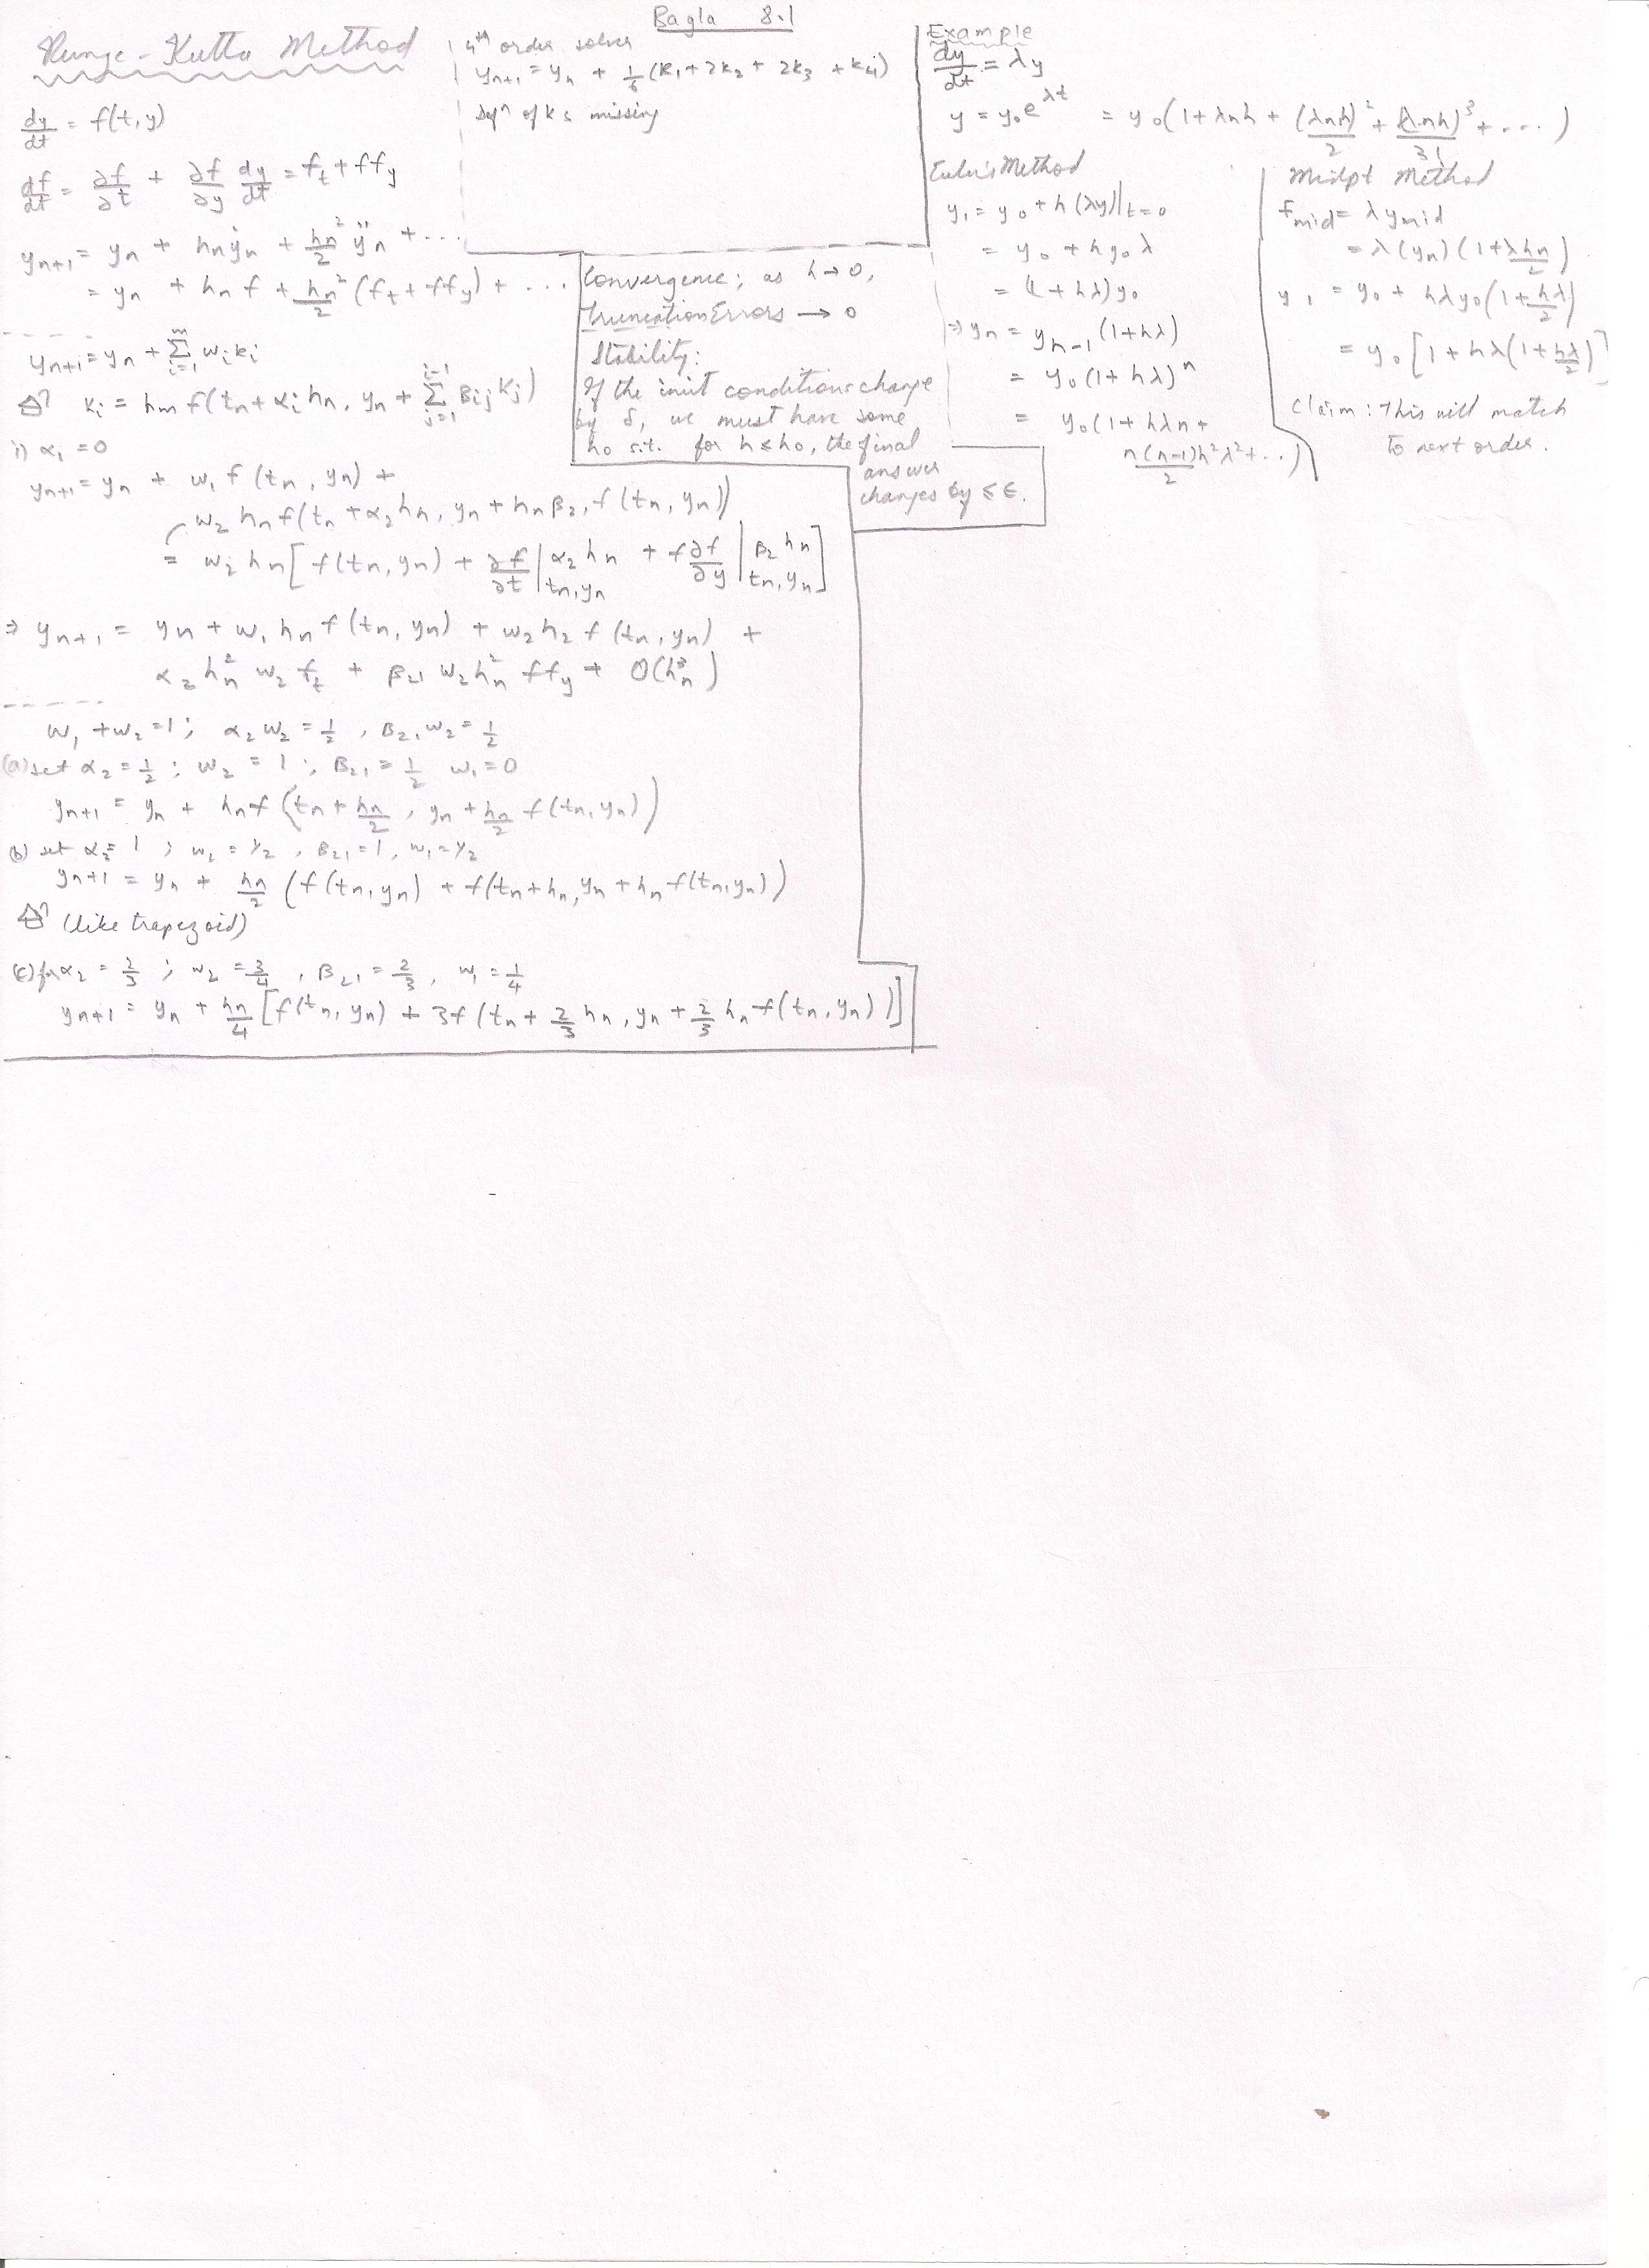 Bagla 8.1
Runge-Kutta Method
dy/dt = f(t,y)
df/dt = ∂f/∂t + ∂f/∂y dy/dt = f_t + ff_y
y_{n+1} = y_n + h_n ẏ_n + h_n²/2 ÿ_n + ...
= y_n + h_n f + h_n²/2 (f_t + ff_y) + ...
y_{n+1} = y_n + Σ_{i=1}^{m} w_i k_i
k_i = h_n f(t_n + α_i h_n, y_n + Σ_{j=1}^{i-1} β_{ij} k_j)
i) α_1 = 0
y_{n+1} = y_n + w_1 f(t_n, y_n) +
w_2 h_n f(t_n + α_2 h_n, y_n + h_n β_{21} f(t_n, y_n))
= w_2 h_n [f(t_n, y_n) + ∂f/∂t |_{t_n, y_n} α_2 h_n + f ∂f/∂y |_{t_n, y_n} β_2 h_n]
⇒ y_{n+1} = y_n + w_1 h_n f(t_n, y_n) + w_2 h_2 f(t_n, y_n) +
α_2 h_n² w_2 f_t + β_{21} w_2 h_n² ff_y + O(h_n³)
w_1 + w_2 = 1; α_2 w_2 = 1/2, β_{21} w_2 = 1/2
(a) set α_2 = 1/2; w_2 = 1; β_{21} = 1/2 w_1 = 0
y_{n+1} = y_n + h_n f(t_n + h_n/2, y_n + h_n/2 f(t_n, y_n))
(b) set α_2 = 1; w_2 = 1/2, β_{21} = 1, w_1 = 1/2
y_{n+1} = y_n + h_n/2 (f(t_n, y_n) + f(t_n + h_n, y_n + h_n f(t_n, y_n))
(like trapezoid)
(c) for α_2 = 2/3; w_2 = 3/4, β_{21} = 2/3, w_1 = 1/4
y_{n+1} = y_n + h_n/4 [f(t_n, y_n) + 3f(t_n + 2/3 h_n, y_n + 2/3 h_n f(t_n, y_n))]
4th order solver
y_{n+1} = y_n + 1/6 (k_1 + 2k_2 + 2k_3 + k_4)
defn of ks missing
Convergence; as h → 0,
Truncation Errors → 0
Stability:
If the init conditions change
by δ, we must have some
h_0 s.t. for h ≤ h_0, the final
answer
changes by ≤ ε.
Example
dy/dt = λy
y = y_0 e^{λt} = y_0(1 + λnh + (λnh)²/2 + (λnh)³/3! + ...)
Euler's Method
y_1 = y_0 + h(λy)|_{t=0}
= y_0 + h y_0 λ
= (1 + hλ)y_0
⇒ y_n = y_{n-1}(1 + hλ)
= y_0(1 + hλ)^n
= y_0(1 + hλn +
n(n-1)h²λ²/2 + ...)
Midpt Method
f_mid = λ y_mid
= λ(y_n)(1 + λh_n/2)
y_1 = y_0 + hλy_0(1 + hλ/2)
= y_0[1 + hλ(1 + hλ/2)]
Claim: This will match
to next order.